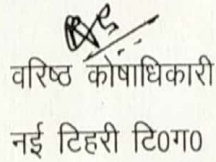 वरिष्ठ कोषाधिकारी
नई टिहरी टि0ग0